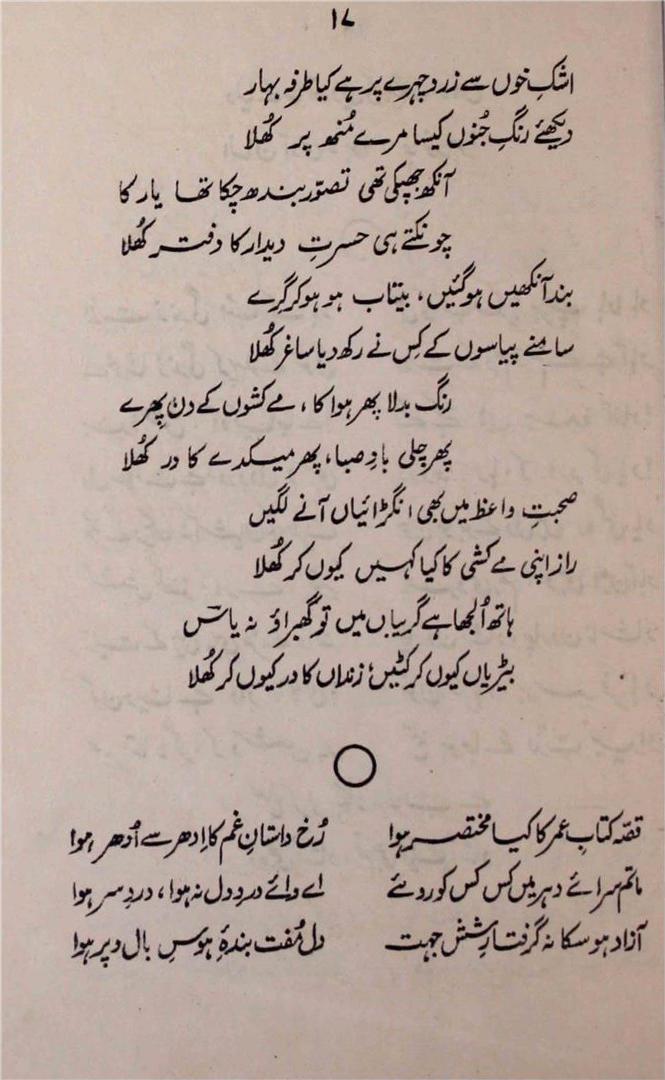 ۱۷
اشکِ خوں سے زرد چہرے پر ہے کیا طرفہ بہار
دیکھئے رنگِ جُنوں کیسا مرے مُنھ پر کُھلا
آنکھ جھپکی تھی تصوّر بندھ چکا تھا یار کا
چونکتے ہی حسرتِ دیدار کا دفتر کُھلا
بند آنکھیں ہوگئیں، بیتاب ہو ہو کر گرے
سامنے پیاسوں کے کِس نے رکھ دیا ساغر کُھلا
رنگ بدلا پھر ہوا کا، مے کشوں کے دن پِھرے
پھر چلی بادِ صبا، پھر میکدے کا در کُھلا
صحبتِ واعظ میں بھی انگڑائیاں آنے لگیں
راز اپنی مے کشی کا کیا کہیں کیوں کر کُھلا
ہاتھ اُلجھا ہے گریباں میں تو گھبراؤ نہ یاسؔ
بیڑیاں کیوں کر کٹیں؛ زنداں کا در کیوں کر کُھلا
قصّہ کتابِ عمر کا کیا مختصر ہوا رُخ داستانِ غم کا اِدھر سے اُدھر ہوا
ماتم سرائے دہر میں کس کس کو روئیے اے وائے دردِ دل نہ ہوا، دردِ سر ہوا
آزاد ہو سکا نہ گرفتارِ شش جہت دل مُفت بندۂ ہوسِ بال و پر ہوا